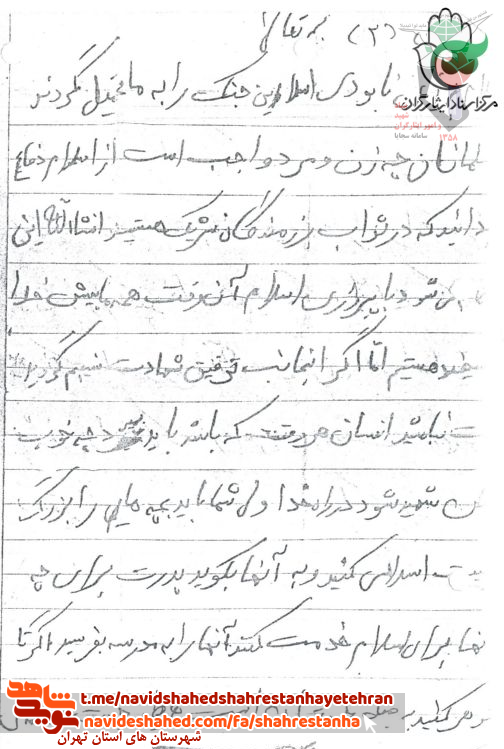 (۳) به تعالی
مرکز اسناد ایثارگران
شهید
و امور ایثارگران
۱۳۵۸ سامانه سجایا
نابودی اسلام این جنگ را به ما تحمیل کردند
لمانان چه زن و مرد واجب است از اسلام دفاع
دانید که در ثواب رزمندگان شریک هستید انشاالله این
می شود با پیروزی اسلام آن وقت همه پیش خدا
سفید هستیم امّا اگر اینجانب توفیق شهادت نصیبم گردید
ت نباشید انسان هر وقت که باشد باید چه خوب
شهید شود در راه خدا ولی شما باید بچه هایم را بزرگ
ت اسلامی کنید و به آنها بگوید پدرت برای چه
برای اسلام خدمت کنند آنها را به مدرسه بفرسید اگر تا
نوید شاهد
t.me/navidshahedshahrestanhayetehran
navideshahed.com/fa/shahrestanha
شهرستان های استان تهران